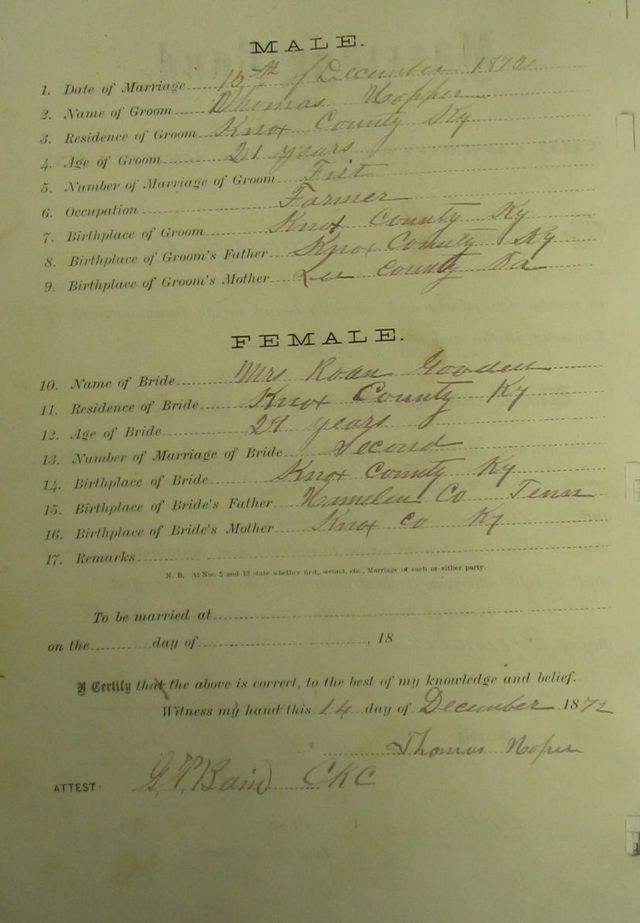 MALE.
1. Date of Marriage 15th of December 1872
2. Name of Groom Thomas Hopper
3. Residence of Groom Knox County Ky
4. Age of Groom 21 years
5. Number of Marriage of Groom Fist
6. Occupation Farmer
7. Birthplace of Groom Knox County Ky
8. Birthplace of Groom's Father Knox County Ky
9. Birthplace of Groom's Mother Lee County Va
FEMALE.
10. Name of Bride Mrs Roan Gooden
11. Residence of Bride Knox County Ky
12. Age of Bride 29 years
13. Number of Marriage of Bride Second
14. Birthplace of Bride Knox County Ky
15. Birthplace of Bride's Father Co Tenn
16. Birthplace of Bride's Mother Knox co Ky
17. Remarks
N. B. At Nos. 5 and 13 state whether first, second, etc., Marriage of each or either party.
To be married at
on the day of , 18
I Certify that the above is correct, to the best of my knowledge and belief.
Witness my hand this 14 day of December 1872
Thomas Hoper
ATTEST: CKC